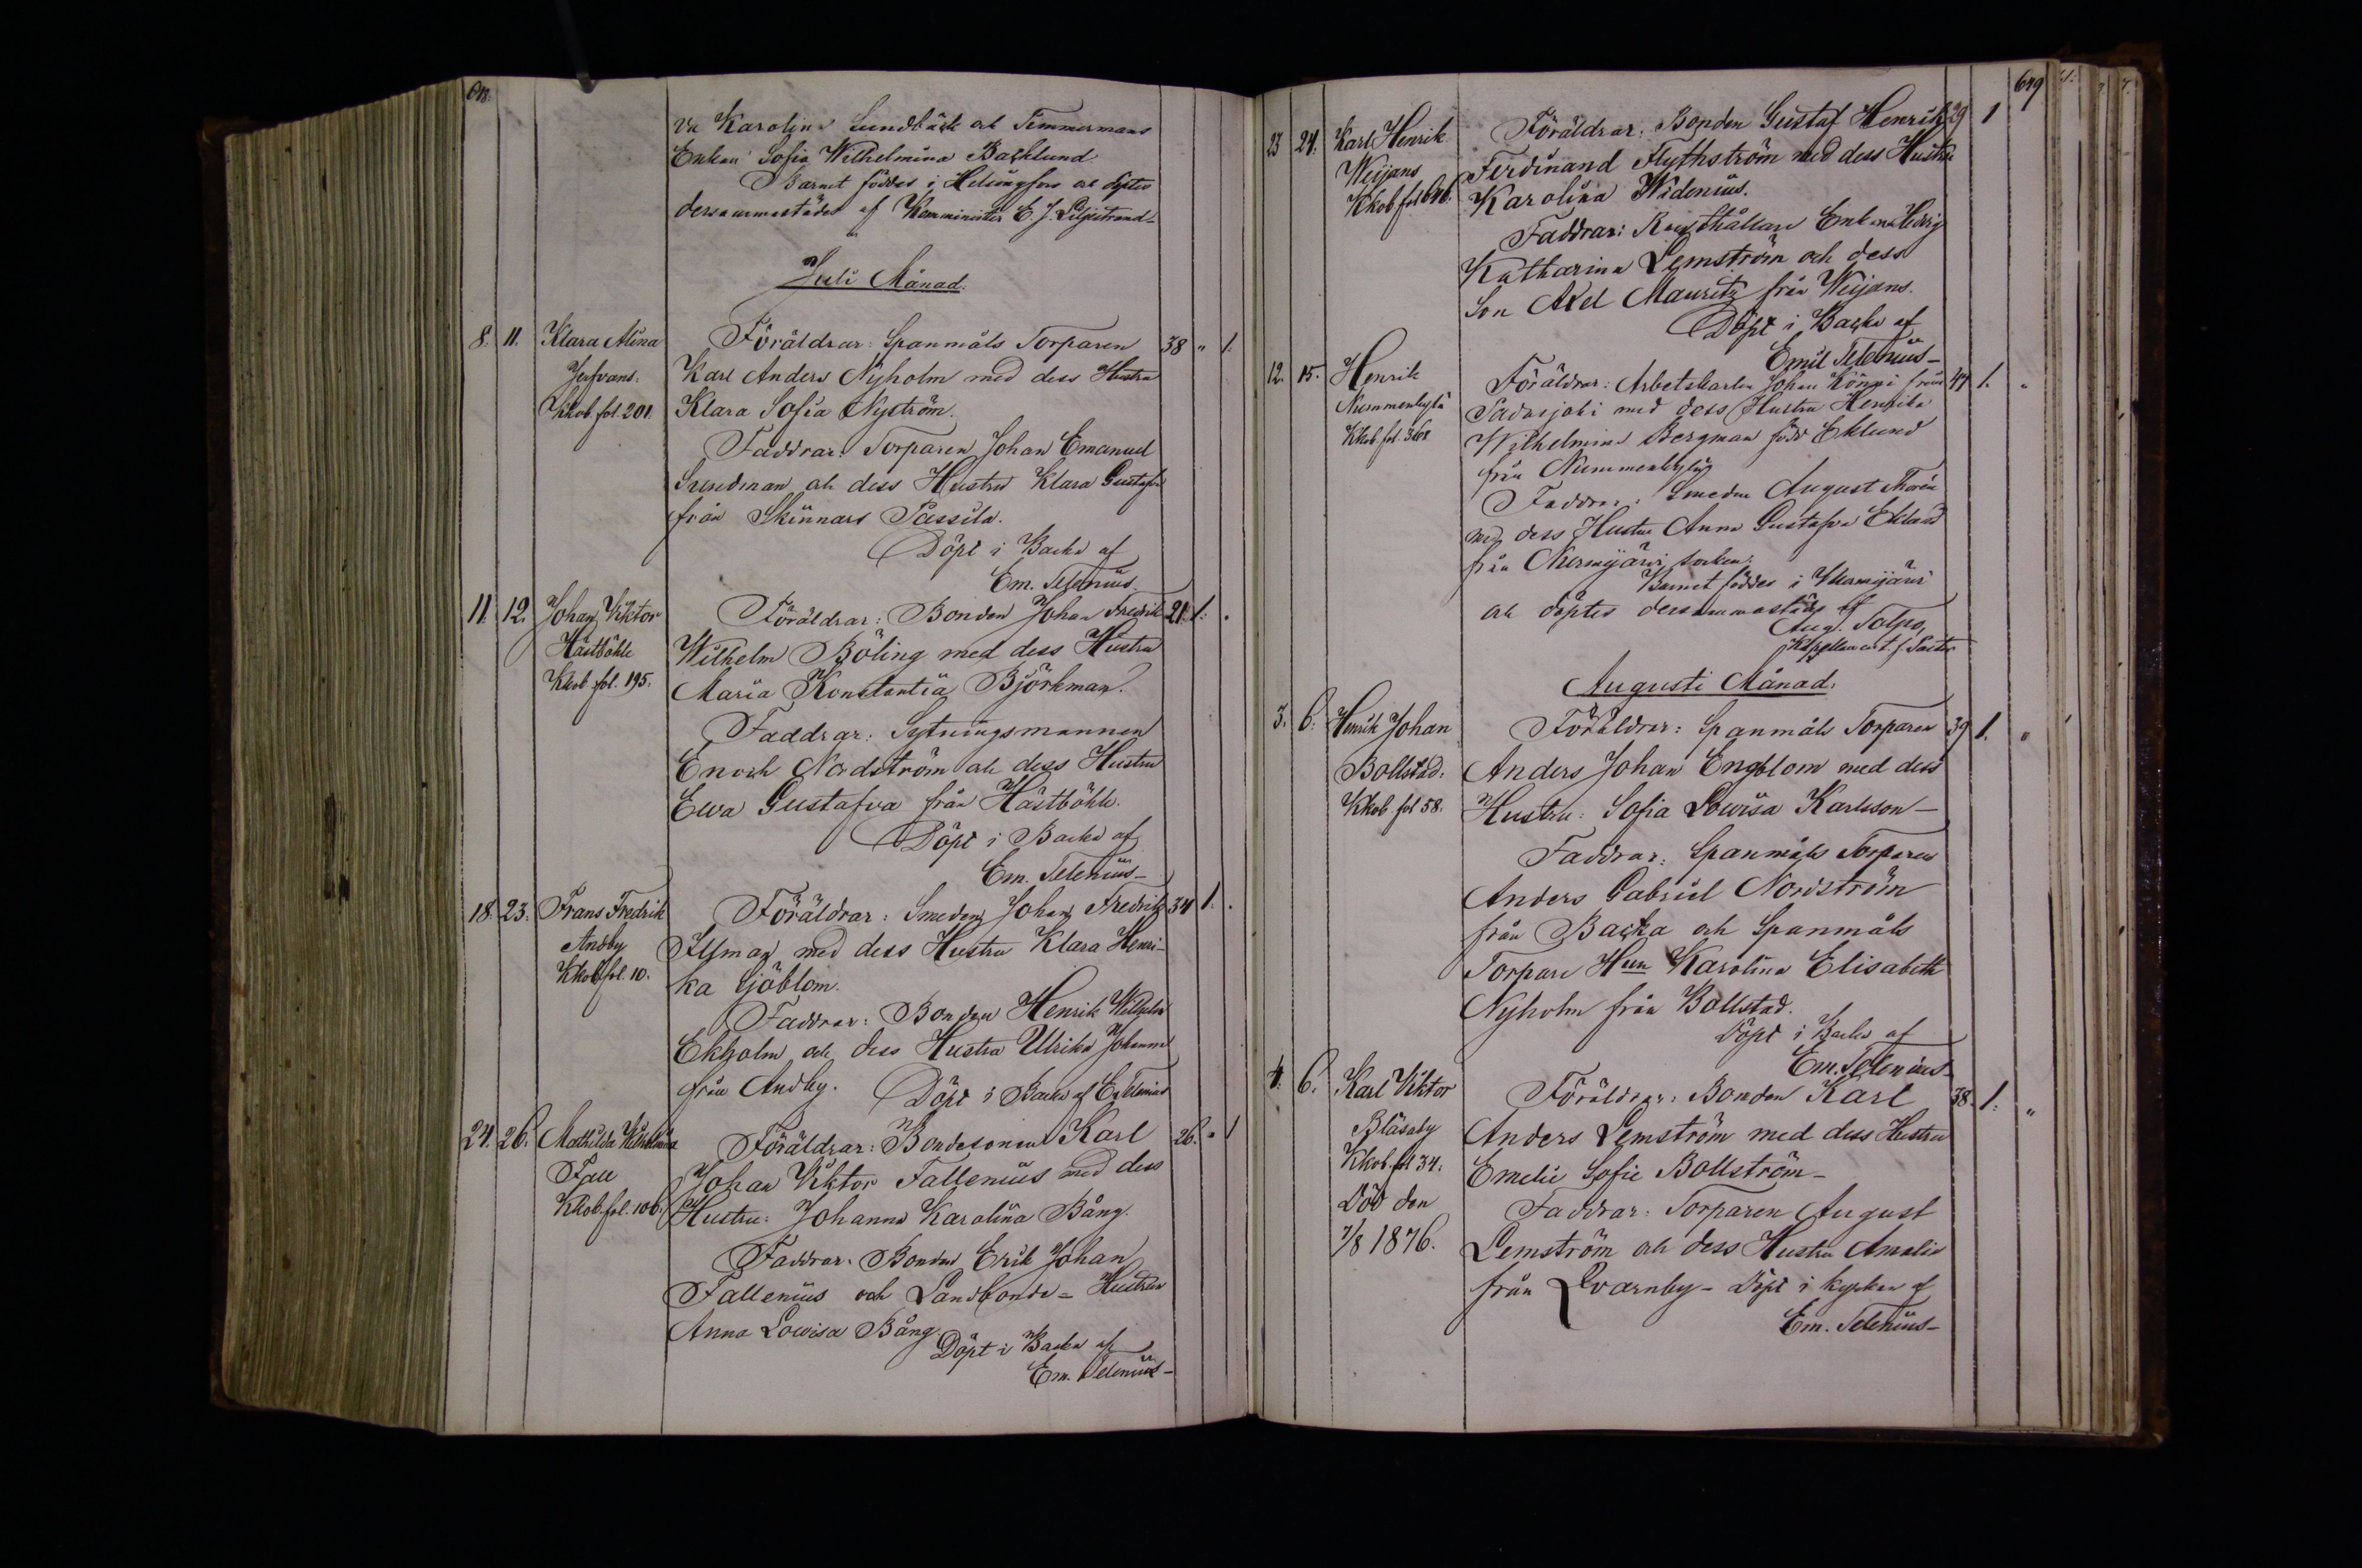 648.
va Karolina Lundbäck och Timmermans
Enkan Sofia Wilhelmina Backlund.
Barnet föddes i Helsingfors och döptes
dersammastädes af Komminister E. J. Liljestrand-
Juli Månad.
8. 11. Klara Alina Föräldrar: Spanmåls Torparen 38 " 1.
Jerfvans. Karl Anders Nyholm med dess Hustru
Kkob. fol. 201 Klara Sofia Nyström.
Faddrar: Torparen Johan Emanuel
Sundman och dess Hustru Klara Gustafva
från Skinnars Passila.
Döpt i Backa af
Em. Telenius.
11. 12. Johan Viktor Föräldrar: Bonden Johan Fredrik 21. 1. "
Hästböhle Wilhelm Böling med dess Hustru
Kkob fol. 195. Maria Konstantia Björkman.
Faddrar: Sytningsmannen
Enoch Nordström och dess Hustru
Ewa Gustafva från Hästböhle.
Döpt i Backa af
Em. Telenius-
18. 23. Frans Fredrik Föräldrar: Smeden Johan Fredrik 34 1. "
Andby med dess Hustru Klara Henri-
Kkob fol. 10. ka Sjöblom.
Faddrar: Bonden Henrik Wilhelm
Ekholm och dess Hustru Ulrika Johanna
från Andby. Döpt i Backa af Em Telenius
24. 26. Mathilda Wilhelmina Föräldrar: Bondesonen Karl 26. " 1
Fall Johan Viktor Fallenius med dess
Kkob. fol. 106. Hustru: Johanna Karolina Bång.
Faddrar: Bonden Erik Johan
Fallenius och Landbonde- Hustrun
Anna Lowisa Bång
Döpt i Backa af
Em. Telenius-
649
23 24. Karl Henrik Föräldrar: Bonden Gustaf Henrik 29 1
Weijans Ferdinand Flythström med dess Hustru
Kkob fol Karolina Widenius.
Faddrar: Rusthållare Enkan Hedvig
Katharina Lemström och dess
Son Axel Mauritz från Weijans.
Döpt i Backa af
Emil Telenius-
12. 15. Henrik Föräldrar: Arbetskarlen Johan Könni från 44 1. "
Nummenkylä Padasjoki med dess Hustru Henrika
Kkob. fol. 368 Wilhelmina Bergman född Eklund
från Nummenkylä
Faddrar: Smeden August Thorén
med dess Hustru Anna Gustafva Eklund
från Nurmijärvi socken.
Barnet föddes i Nurmijärvi
och döptes dersammastädes af
Aug. Talpo,
Kapellan o. t. f. Pastor
Augusti Månad.
3. 6. Henrik Johan Föräldrar: Spanmåls Torparen 39 1. "
Bollstad. Anders Johan Engblom med dess
Kkob fol 58. Hustru: Sofia Lowisa Karlsson-
Faddrar: Spanmåls Torparen
Anders Gabriel Nordström
från Backa och Spanmåls
Torpare Hun Karolina Elisabeth
Nyholm från Bollstad.
Döpt i Backa af
Em. Telenius-
4. 6. Karl Viktor Föräldrar: Bonden Karl 38. 1. "
Blåsaby Anders Lemström med dess Hustru
Kkob. fol 34. Emelie Sofie Bollström-
Död den Faddrar: Torparen August
7/8 1876. Lemström och dess Hustru Amalia
från Qvarnby- Döpt i kyrkan af
Em. Telenius-